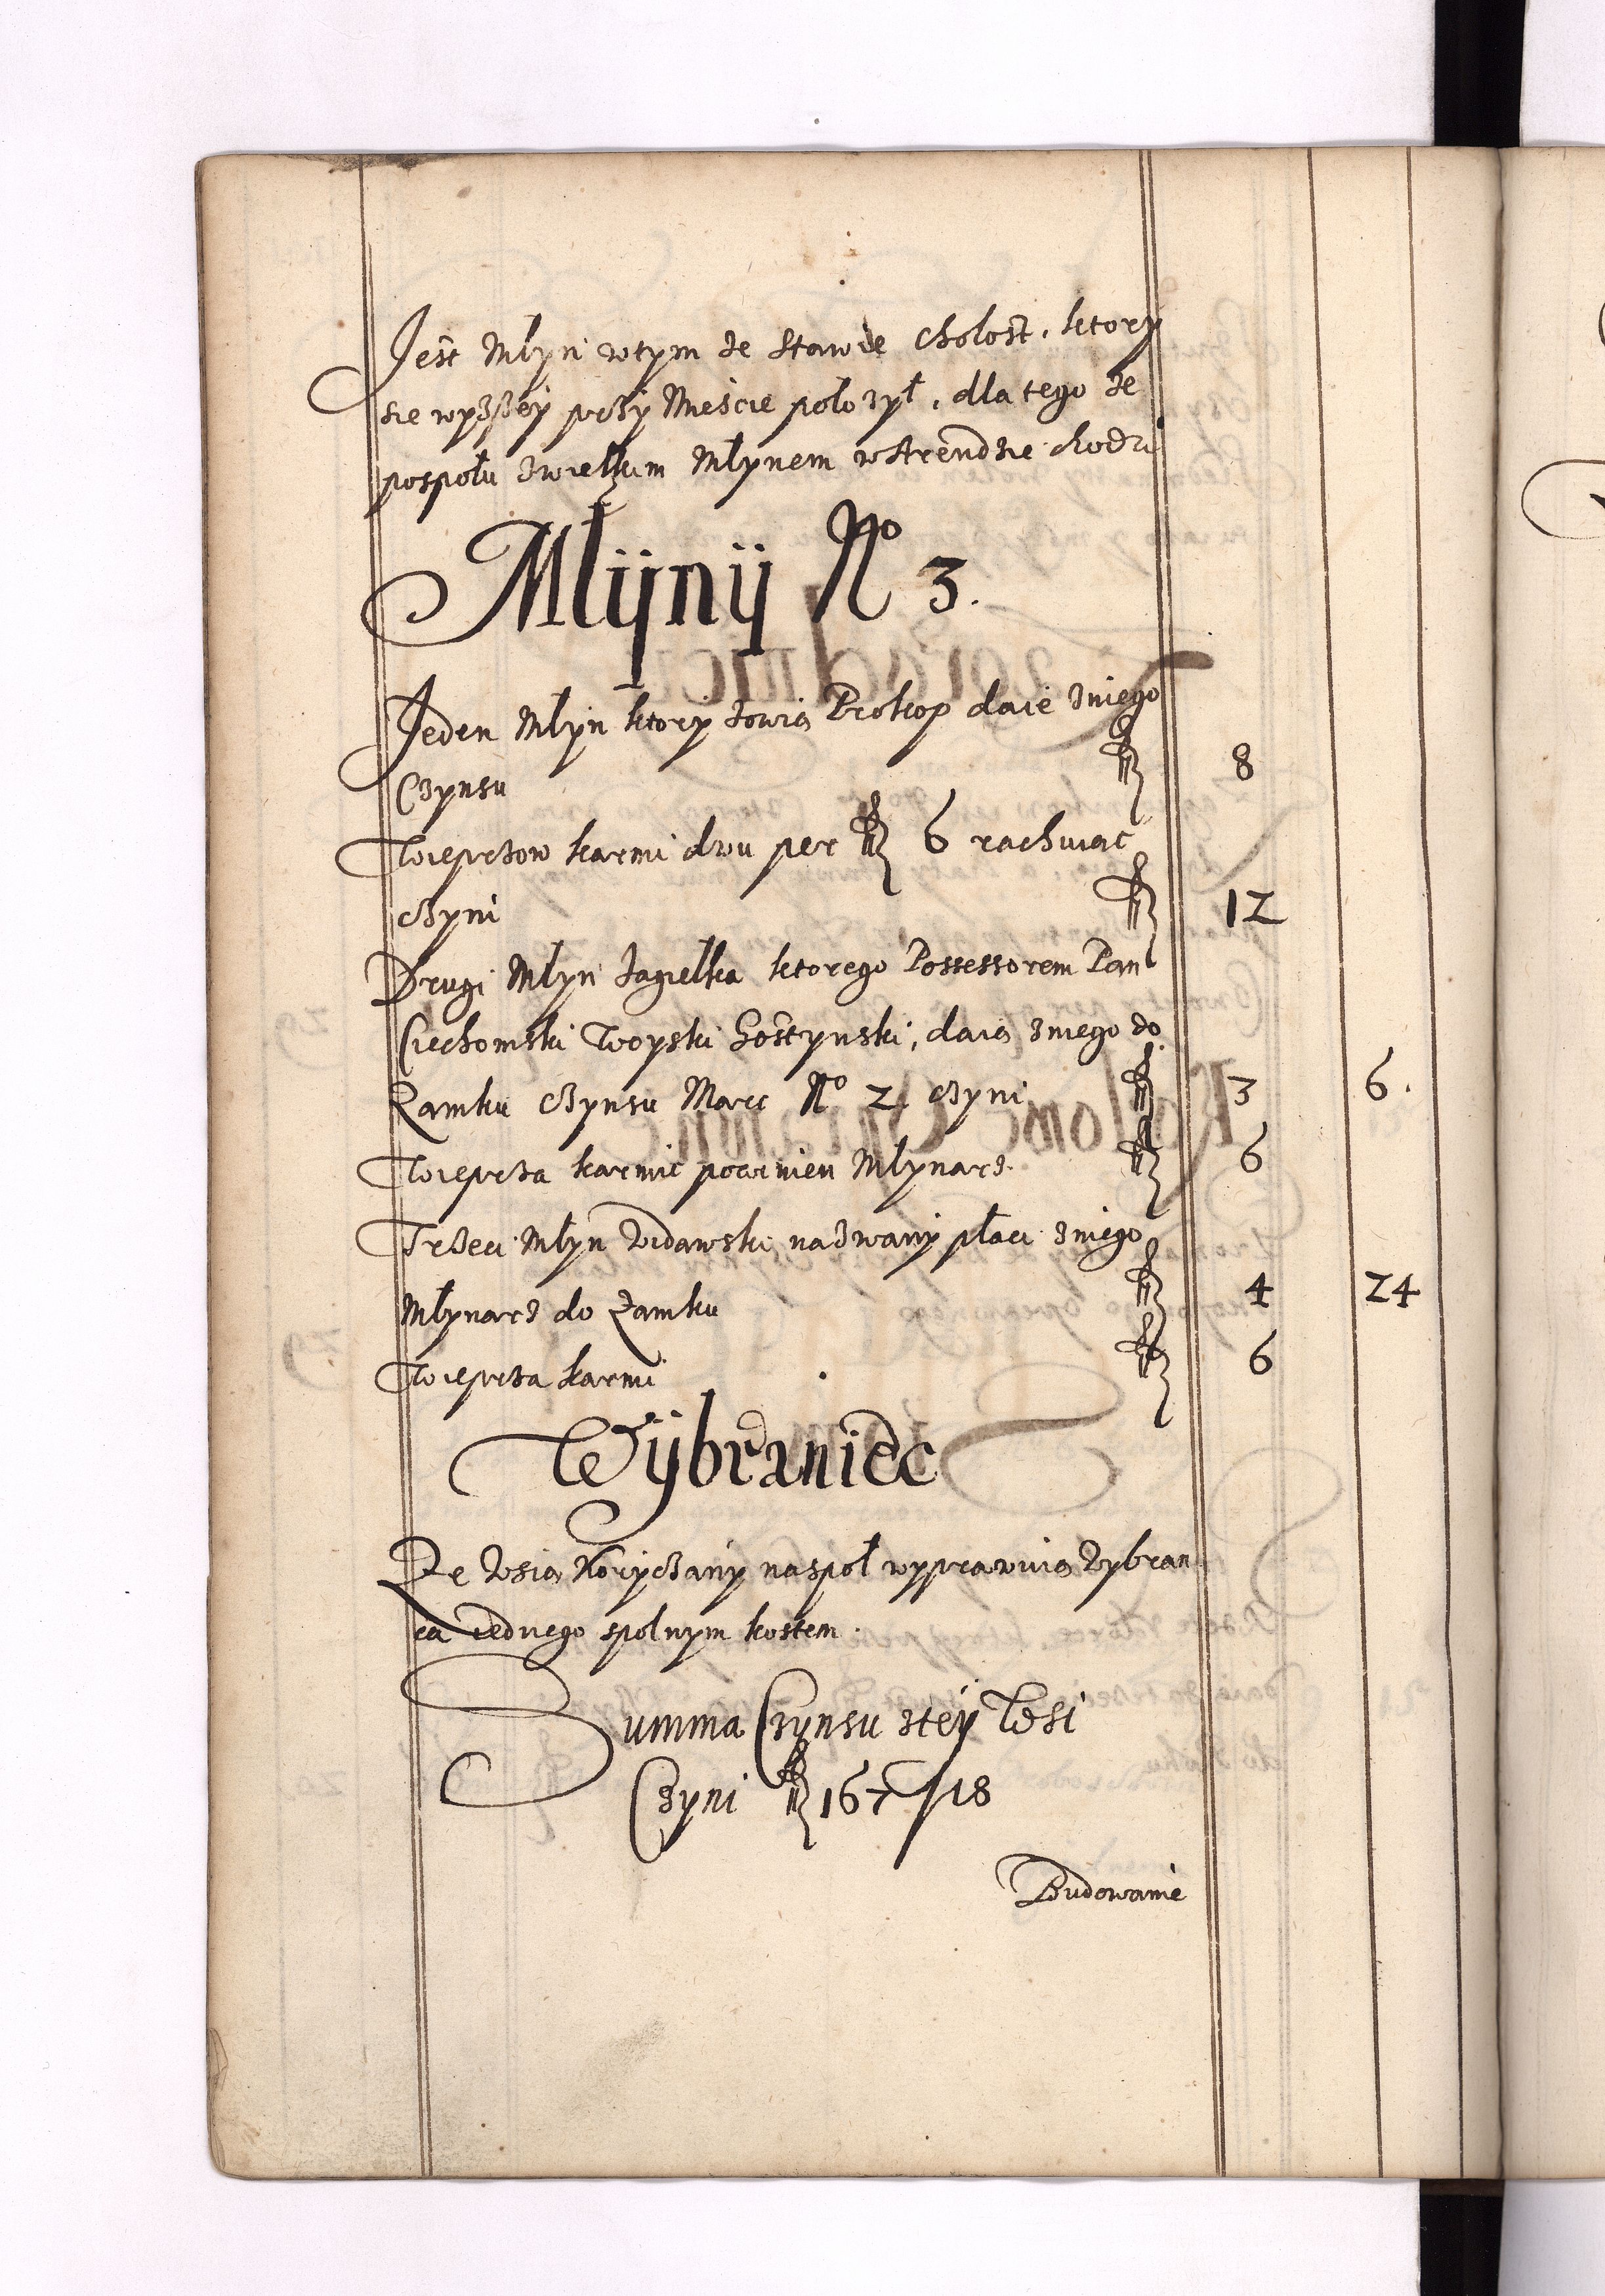 Jest Młyn wtym że stawie Chołost, ktory
sie wyższej przy Mieście położył, dla tego że
pospołu zwielkim Młynem wArendzie chodzi
Mlÿnÿ No 3.
Jeden Młyn ktory zowią Prokop daie zniego
Czynsu fl 8
Wieprzow karmi dwu per fl 6 rachuiąc
czyni fl 12
Drugi Młyn Jagiełka ktorego Possessorem Pan
Ciechomski Woyski Gostynski, daią zniego do
Zamku Czynsu Marc No 2 czyni fl 3 6.
Wieprza karmić powinien Młynarz fl 6
Trzeci Młyn Widawski nazwany płaci zniego
Młynarz do Zamku fl 4 24
Wieprza karmi fl 6
Wÿbraniec
Ze Wsią Koryczany naspoł wyprawuią Wybran
ca iednego spolnym kostem.
Summa Czynsu ztey Wsi
Czyni fl 167/18
Budowanie